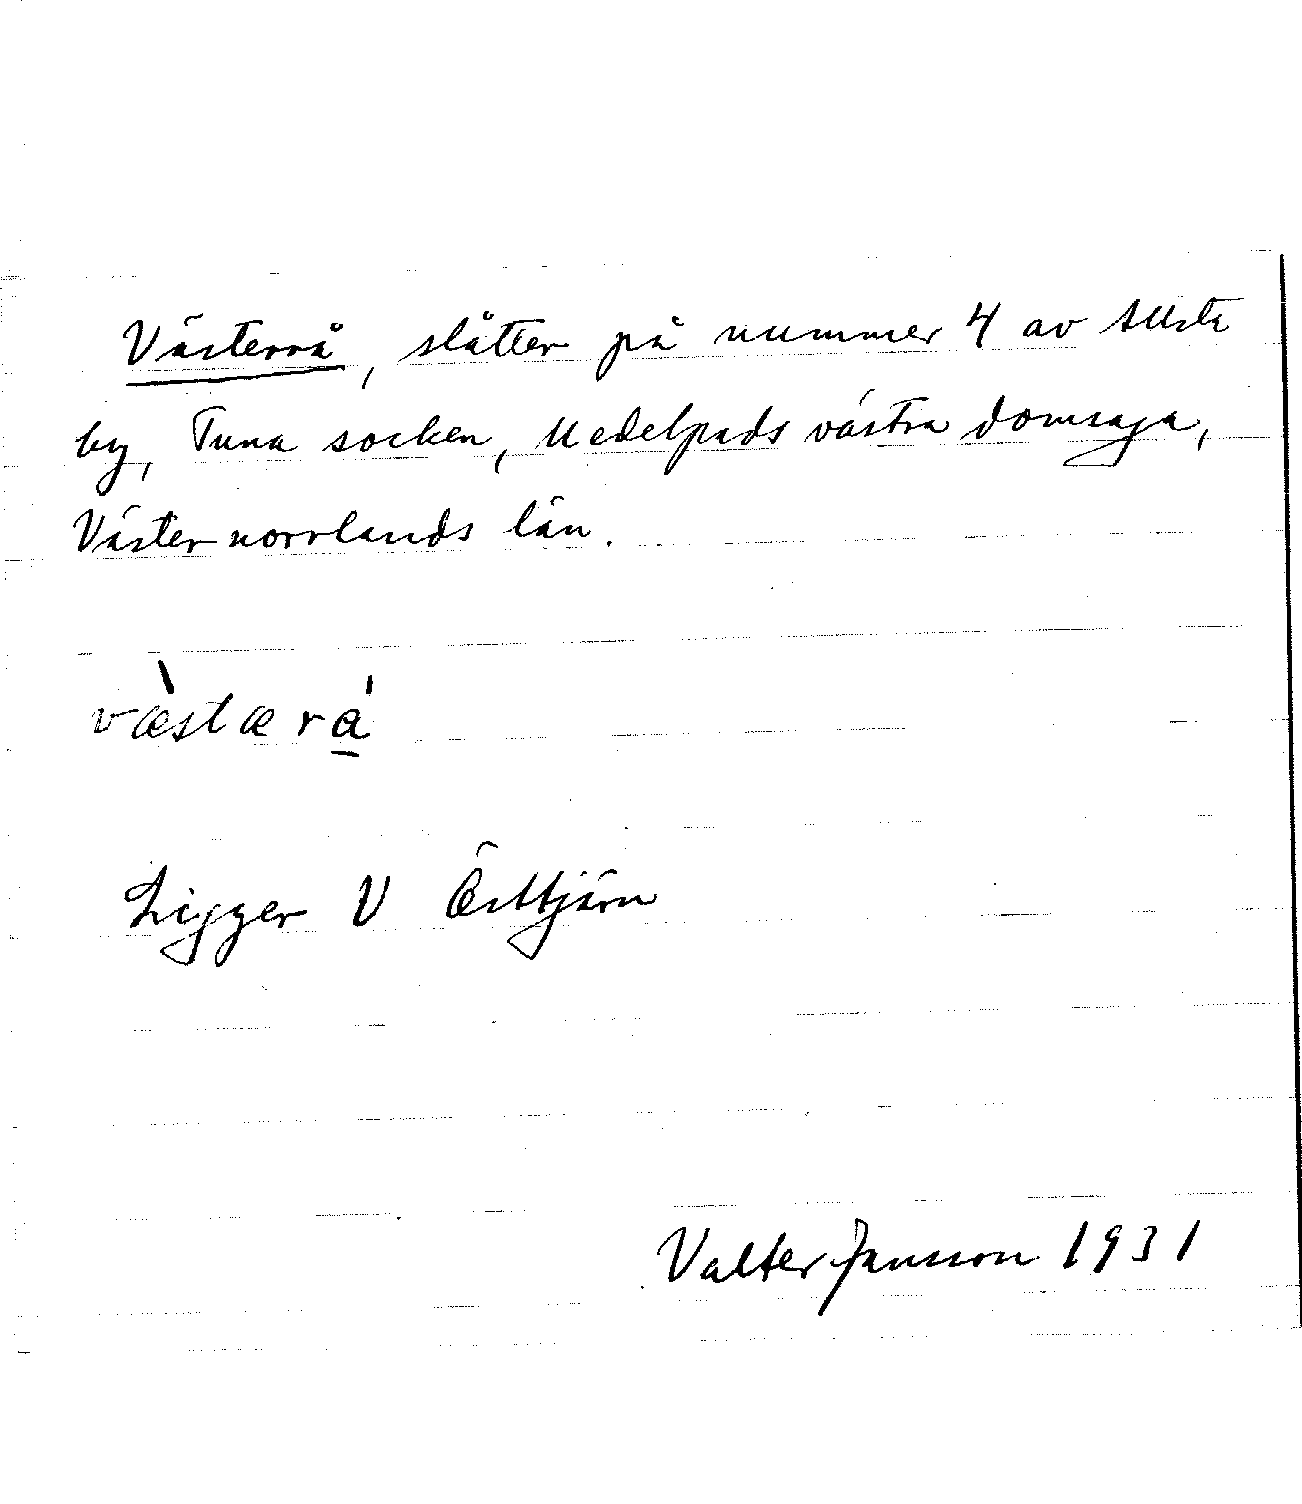 Västerrå, slåtter på nummer 4 av Allsta
by, Tuna socken, Medelpads västra domsaga,
Västernorrlands län.
væ̀stærá̱
Ligger V Östtjärn
Valter Jansson 1931